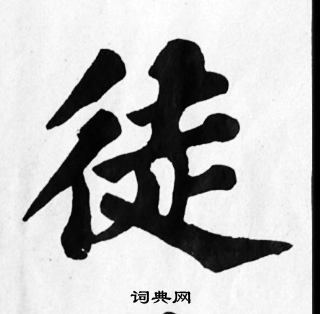 徒
词典网